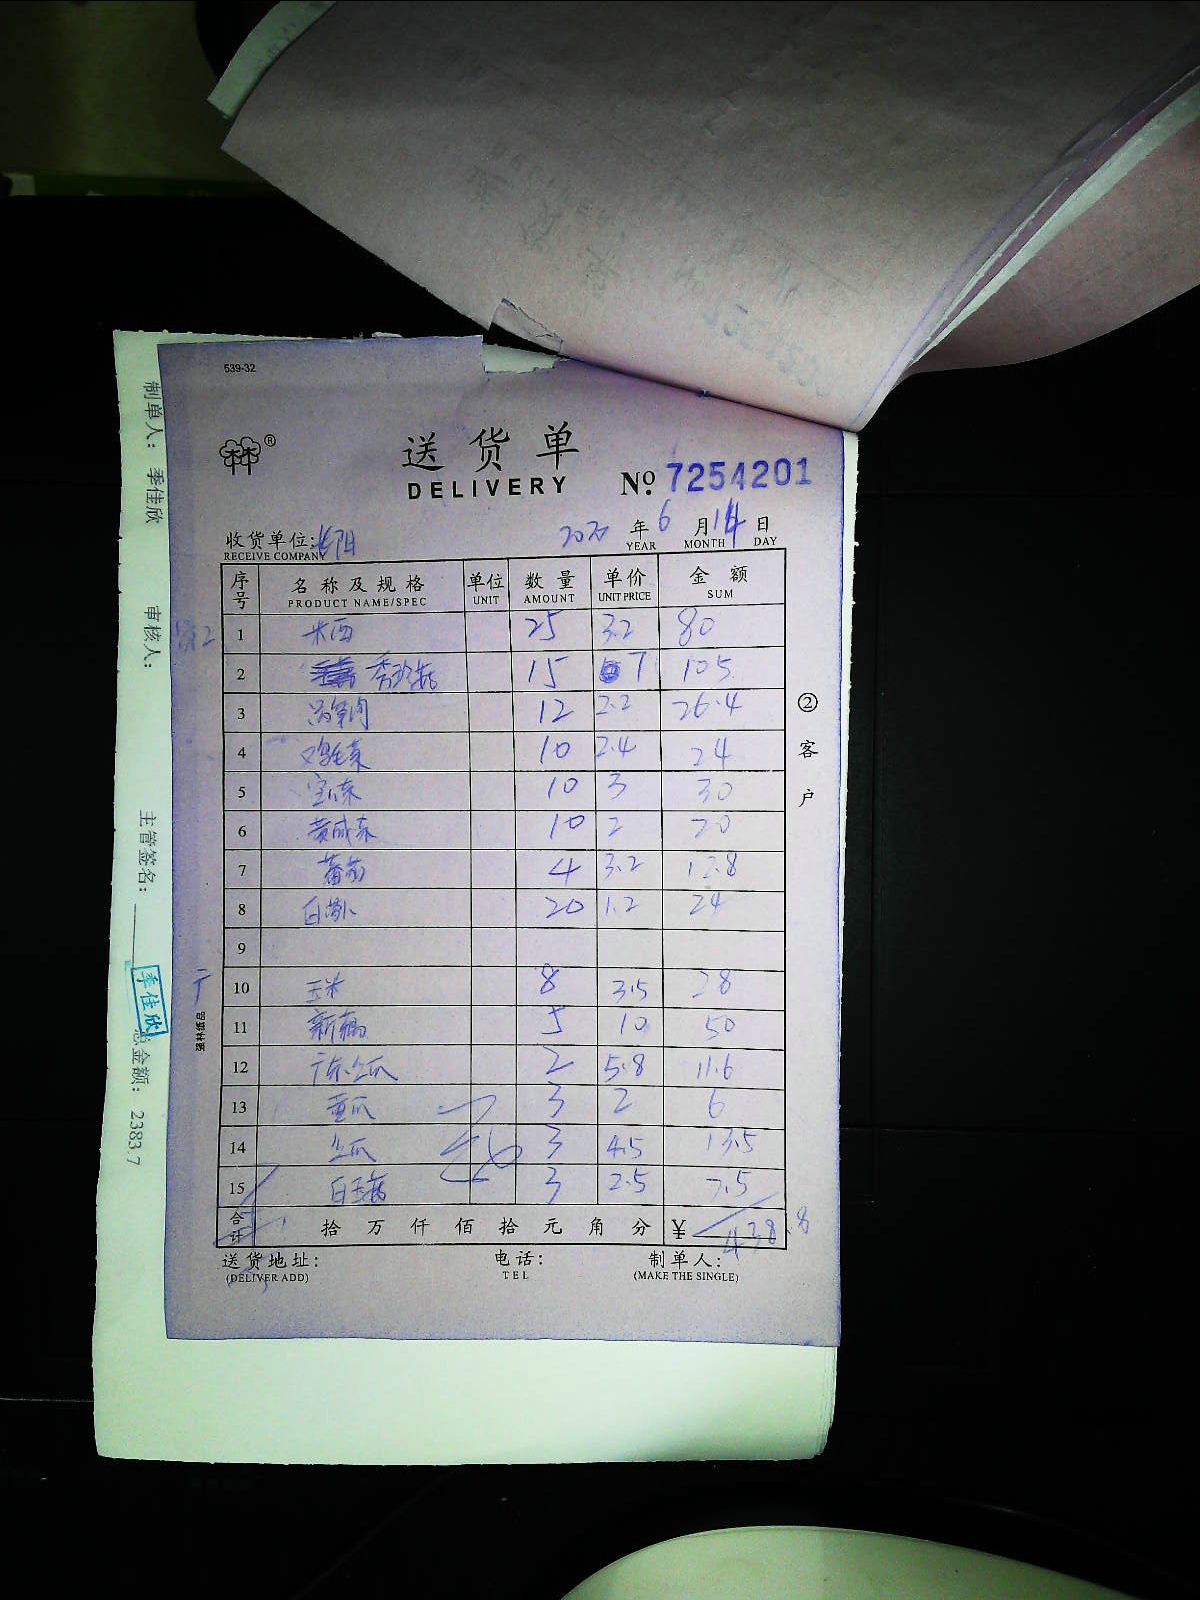 539-32
林®
送货单
DELIVERY
№ 7254201
收货单位:
RECEIVE COMPANY
2020 年 6 月 14 日
YEAR MONTH DAY
序号 名称及规格 单位 数量 单价 金额
PRODUCT NAME/SPEC UNIT AMOUNT UNIT PRICE SUM
1 25 3.2 80
2 秀珍菇 15 7 105
3 12 2.2 26.4
4 鸡毛菜 10 2.4 24
5 10 3 30
6 10 2 20
7 蕃茄 4 3.2 12.8
8 白萝卜 20 1.2 24
9
10 玉米 8 3.5 28
11 5 10 50
12 2 5.8 11.6
13 黄瓜 3 2 6
14 3 4.5 13.5
15 白玉菇 3 2.5 7.5
合计 拾 万 仟 佰 拾 元 角 分 ¥ 438.8
送货地址: 电话: 制单人:
(DELIVER ADD) TEL (MAKE THE SINGLE)
②客户
强林纸品
制单人: 季佳欣 审核人: 主管签名: 总金额: 2383.7
季佳欣